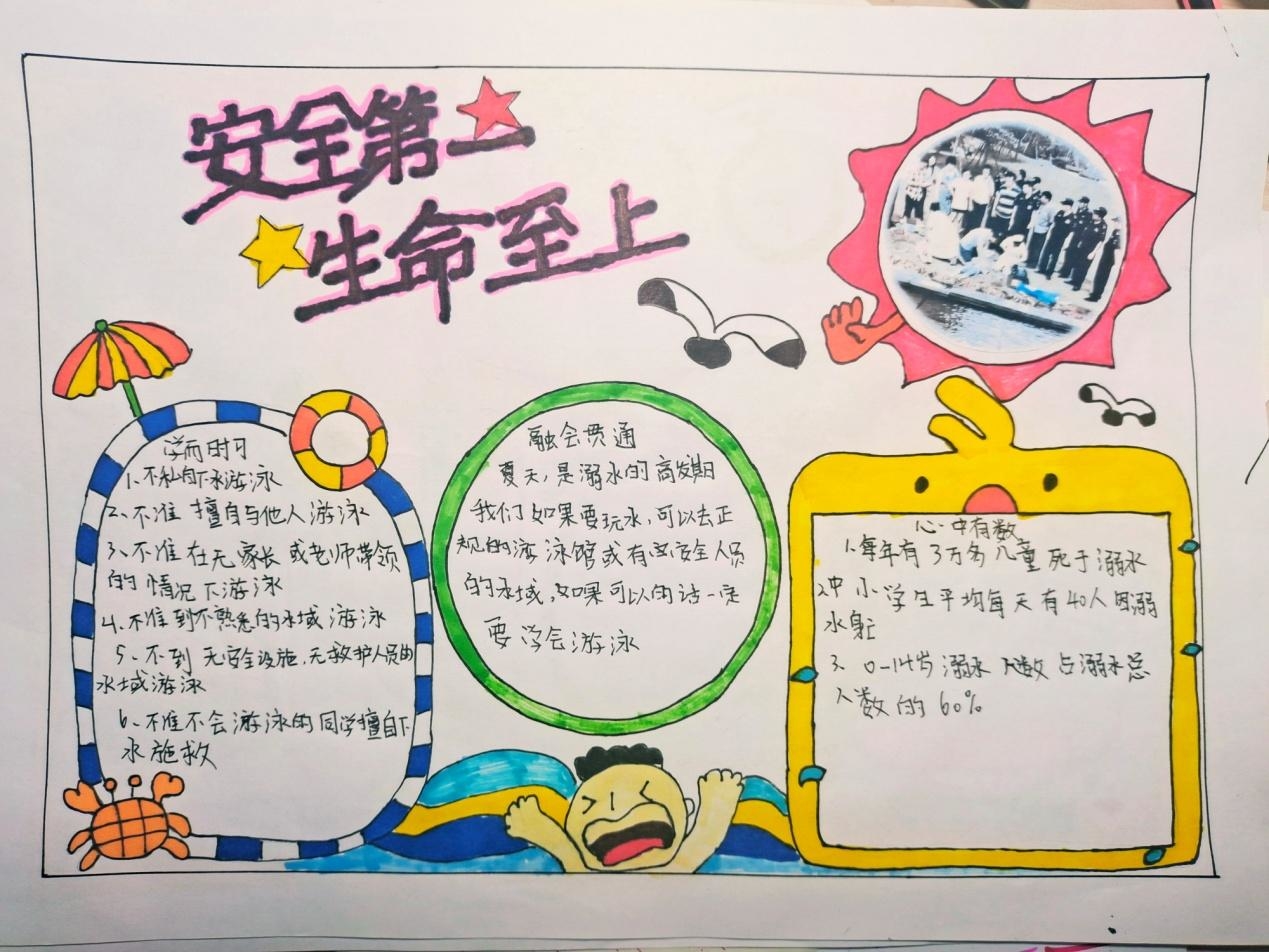 安全第一
生命至上
学而时习
1、不私自下水游泳
2、不准擅自与他人游泳
3、不准在无家长或老师带领
的情况下游泳
4、不准到不熟悉的水域游泳
5、不到无安全设施,无救护人员的
水域游泳
6、不准不会游泳的同学擅自下
水施救
融会贯通
夏天,是溺水的高发期
我们如果要玩水,可以去正
规的游泳馆或有安全人员
的水域,如果可以的话一定
要学会游泳
心中有数
1、每年有3万名儿童死于溺水
2、中小学生平均每天有40人因溺
水身亡
3、0-14岁溺水人数占溺水总
人数的60%